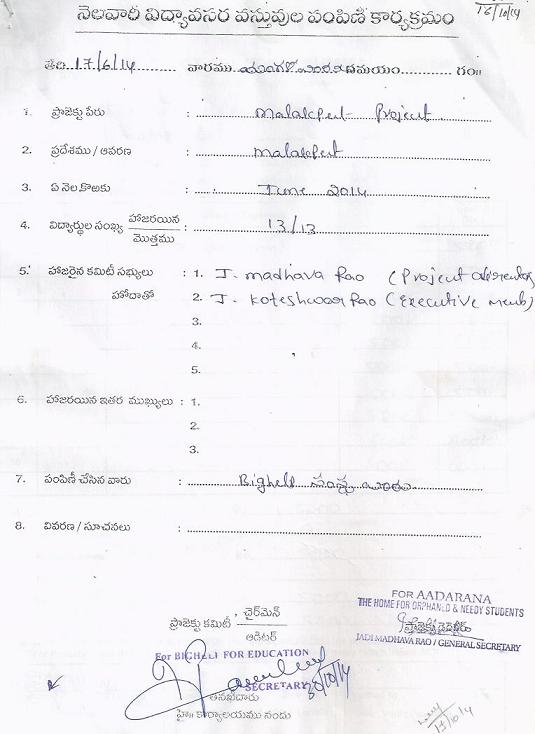 నెలవారీ విద్యావసర వస్తువుల పంపిణీ కార్యక్రమం
18/10/14
తేది 17/6/14 వారము సమయం గం॥
1. ప్రాజెక్టు పేరు : malakpet Project
2. ప్రదేశము / ఆవరణ : malakpet
3. ఏ నెల కొఱకు : June 2014
4. విద్యార్థుల సంఖ్య హాజరయిన / మొత్తము : 13/13
5. హాజరైన కమిటీ సభ్యులు : 1. J. madhava Rao (Project
హోదాతో 2. J. koteshwar Rao (Executive memb)
3.
4.
5.
6. హాజరయిన ఇతర ముఖ్యులు : 1.
2.
3.
7. పంపిణీ చేసిన వారు : Bighelp
8. వివరణ / సూచనలు :
FOR AADARANA
THE HOME FOR ORPHANED & NEEDY STUDENTS
ప్రాజెక్టు డైరెక్టర్
JADI MADHAVA RAO / GENERAL SECRETARY
ప్రాజెక్టు కమిటీ, చైర్‌మెన్
ఆడిటర్
For BIGHELP FOR EDUCATION
SECRETARY
హై॥ కార్యాలయము నందు
17/10/14